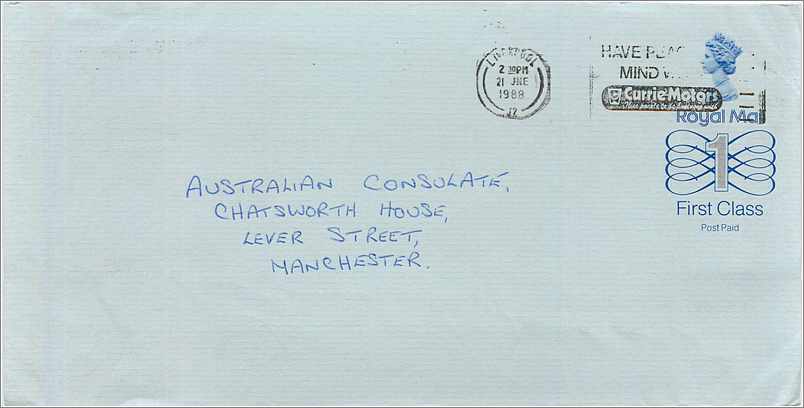 LIVERPOOL
2 30PM
21 JNE
1988
HAVE
MIND
Currie Motors
Royal Mail
1
First Class
Post Paid
AUSTRALIAN CONSULATE,
CHATSWORTH HOUSE,
LEVER STREET,
MANCHESTER.